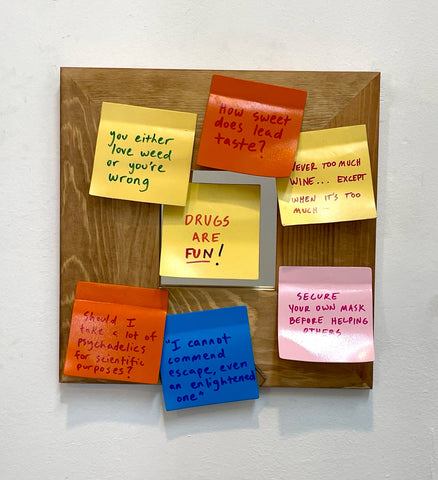 How sweet
does lead
taste?
you either
love weed
or you're
wrong
NEVER TOO MUCH
WINE... EXCEPT
WHEN IT'S TOO
MUCH —
DRUGS
ARE
FUN!
SECURE
YOUR OWN MASK
BEFORE HELPING
OTHERS
Should I
take a lot of
psychadelics
for scientific
purposes?
"I cannot
commend
escape, even
an enlightened
one"